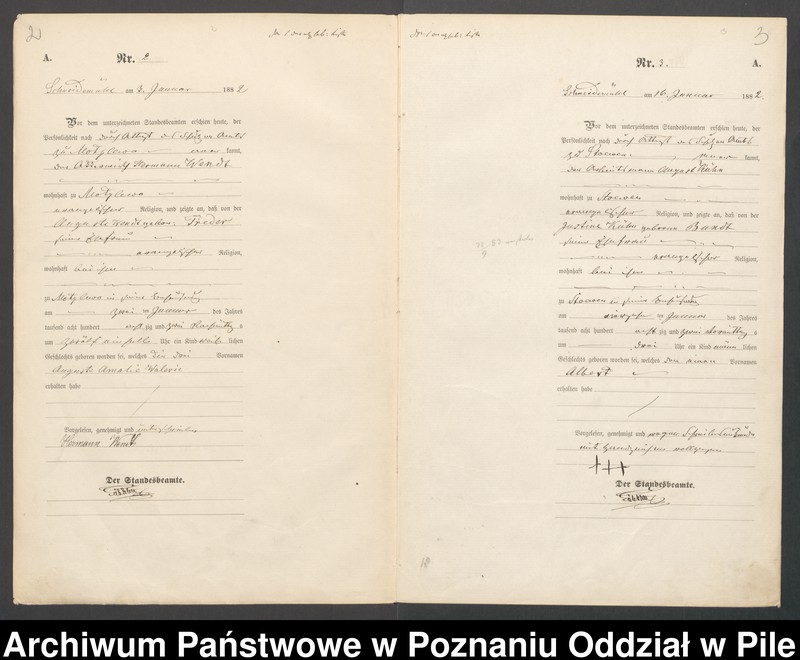 2
A.
Nr. 2
Schneidemühl am 3. Januar 1882
Vor dem unterzeichneten Standesbeamten erschien heute, der
Persönlichkeit nach durch Attest des Schulzen Amts
zu Motylewo kannt,
der Hermann Wendt
wohnhaft zu Motylewo
evangelischer Religion, und zeigte an, daß von der
Auguste Wendt geborn. Treder
seine Ehefrau
evangelischer Religion,
wohnhaft bei ihm
zu Motylewo in seiner Behausung
am zwei ten Januar des Jahres
tausend acht hundert acht zig und zwei Nachmittags
um zwölf einhalb Uhr ein Kind weib lichen
Geschlechts geboren worden sei, welches die drei Vornamen
Auguste Amalie Valerie
erhalten habe
Vorgelesen, genehmigt und unterschrieben
Hermann Wendt
Der Standesbeamte.
3
Nr. 3.
A.
Schneidemühl am 16. Januar 1882.
Vor dem unterzeichneten Standesbeamten erschien heute, der
Persönlichkeit nach durch Attest des Schulzen Amts
zu Stoewen kannt,
der Arbeitsmann August Kühn
wohnhaft zu Stoewen
evangelischer Religion, und zeigte an, daß von der
Justine Kühn geborene Bandt
seine Ehefrau
evangelischer Religion,
wohnhaft bei ihm
zu Stoewen in seiner Behausung
am vierzehn ten Januar des Jahres
tausend acht hundert acht zig und zwei Vormittag s
um drei Uhr ein Kind männ lichen
Geschlechts geboren worden sei, welches den einen Vornamen
Albert
erhalten habe
Vorgelesen, genehmigt und wegen Schreibensunkunde
mit Handzeichen vollzogen
+++
Der Standesbeamte.
Archiwum Państwowe w Poznaniu Oddział w Pile